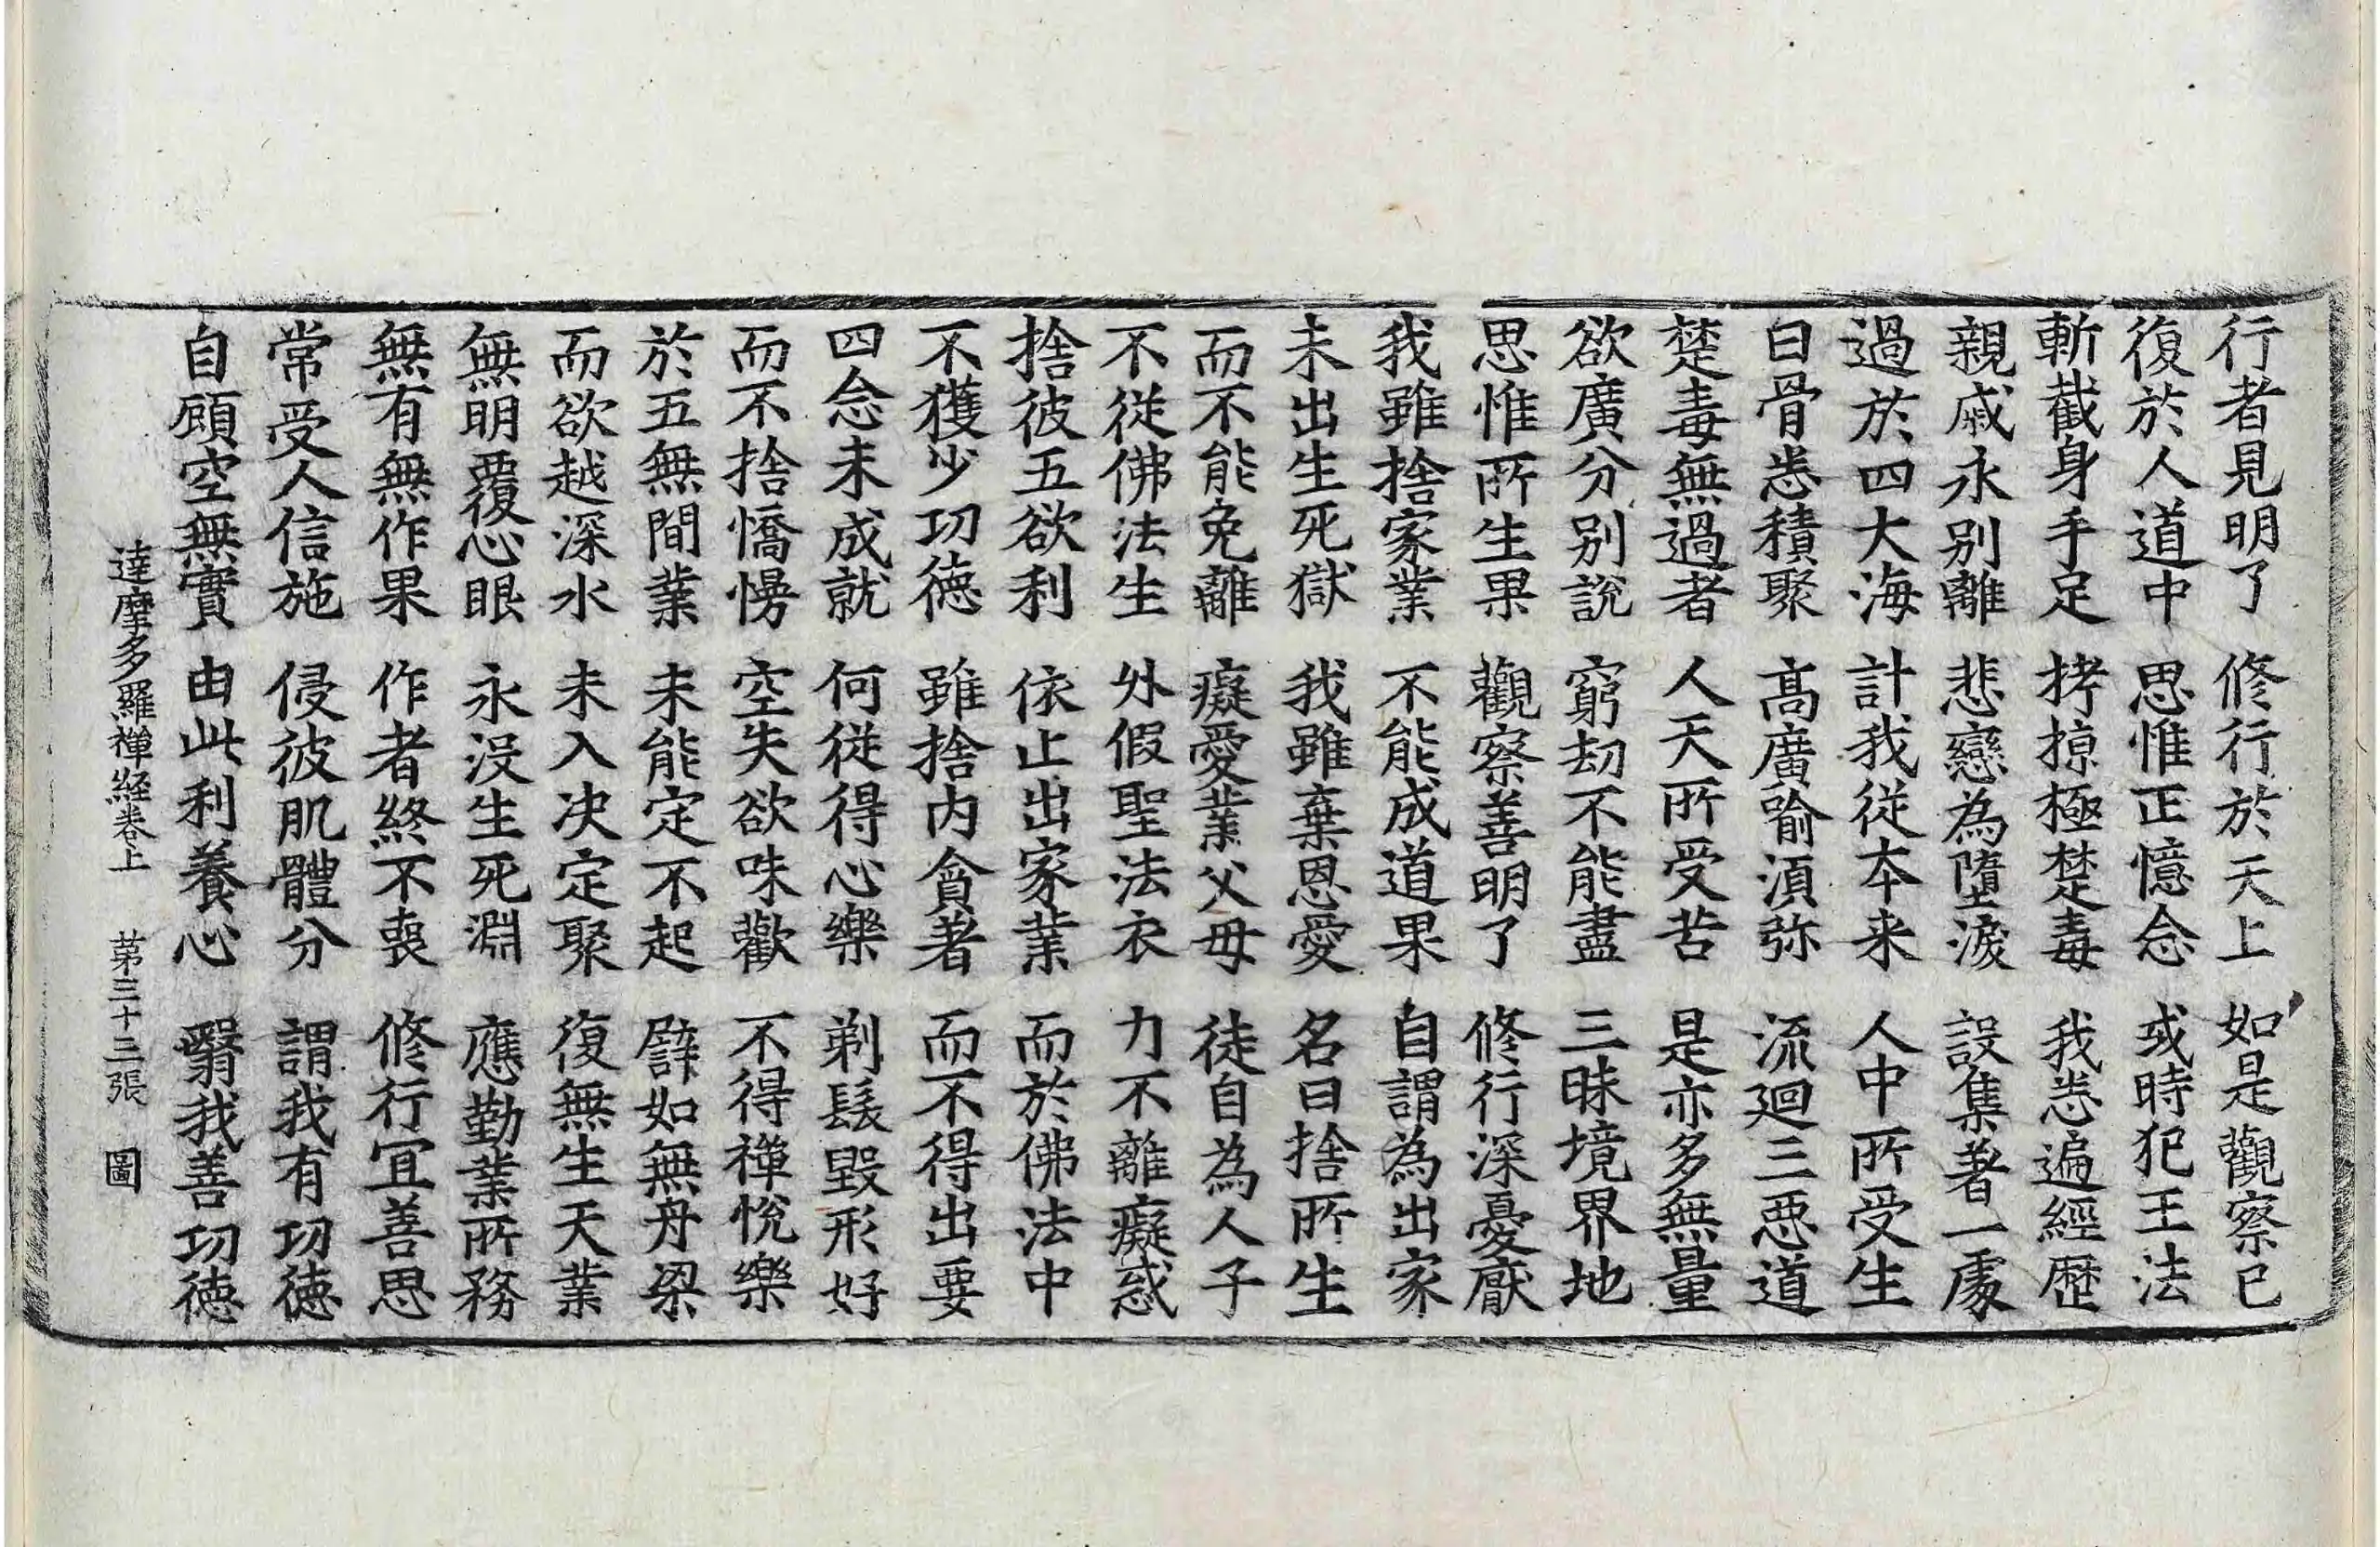 行者見明了　修行於天上　如是觀察已
復於人道中　思惟正憶念　或時犯王法
斬截身手足　拷掠極楚毒　我悉遍經歷
親戚永別離　悲戀為墮淚　設集著一處
過於四大海　計我從本来　人中所受生
白骨悉積聚　髙廣喻湏弥　流迴三惡道
楚毒無過者　人天所受苦　是亦多無量
欲廣分別說　窮劫不能盡　三昧境界地
思惟所生果　觀察善明了　修行深憂厭
我雖捨家業　不能成道果　自謂為出家
未出生死獄　我雖棄恩愛　名曰捨所生
而不能免離　癡愛業父母　徒自為人子
不從佛法生　外假聖法衣　力不離癡惑
捨彼五欲利　依止出家業　而於佛法中
不獲少功德　雖捨内貪著　而不得出要
四念未成就　何從得心樂　剃髮毀形好
而不捨憍慢　空失欲味歡　不得禪悅樂
於五無間業　未能定不起　譬如無舟梁
而欲越深水　未入决定聚　復無生天業
無明覆心眼　永没生死淵　應勤業所務
無有無作果　作者終不喪　修行宜善思
常受人信施　侵彼肌體分　謂我有功徳
自顧空無實　由此利養心　翳我善功徳
達摩多羅禪経卷上　苐三十三張　圖